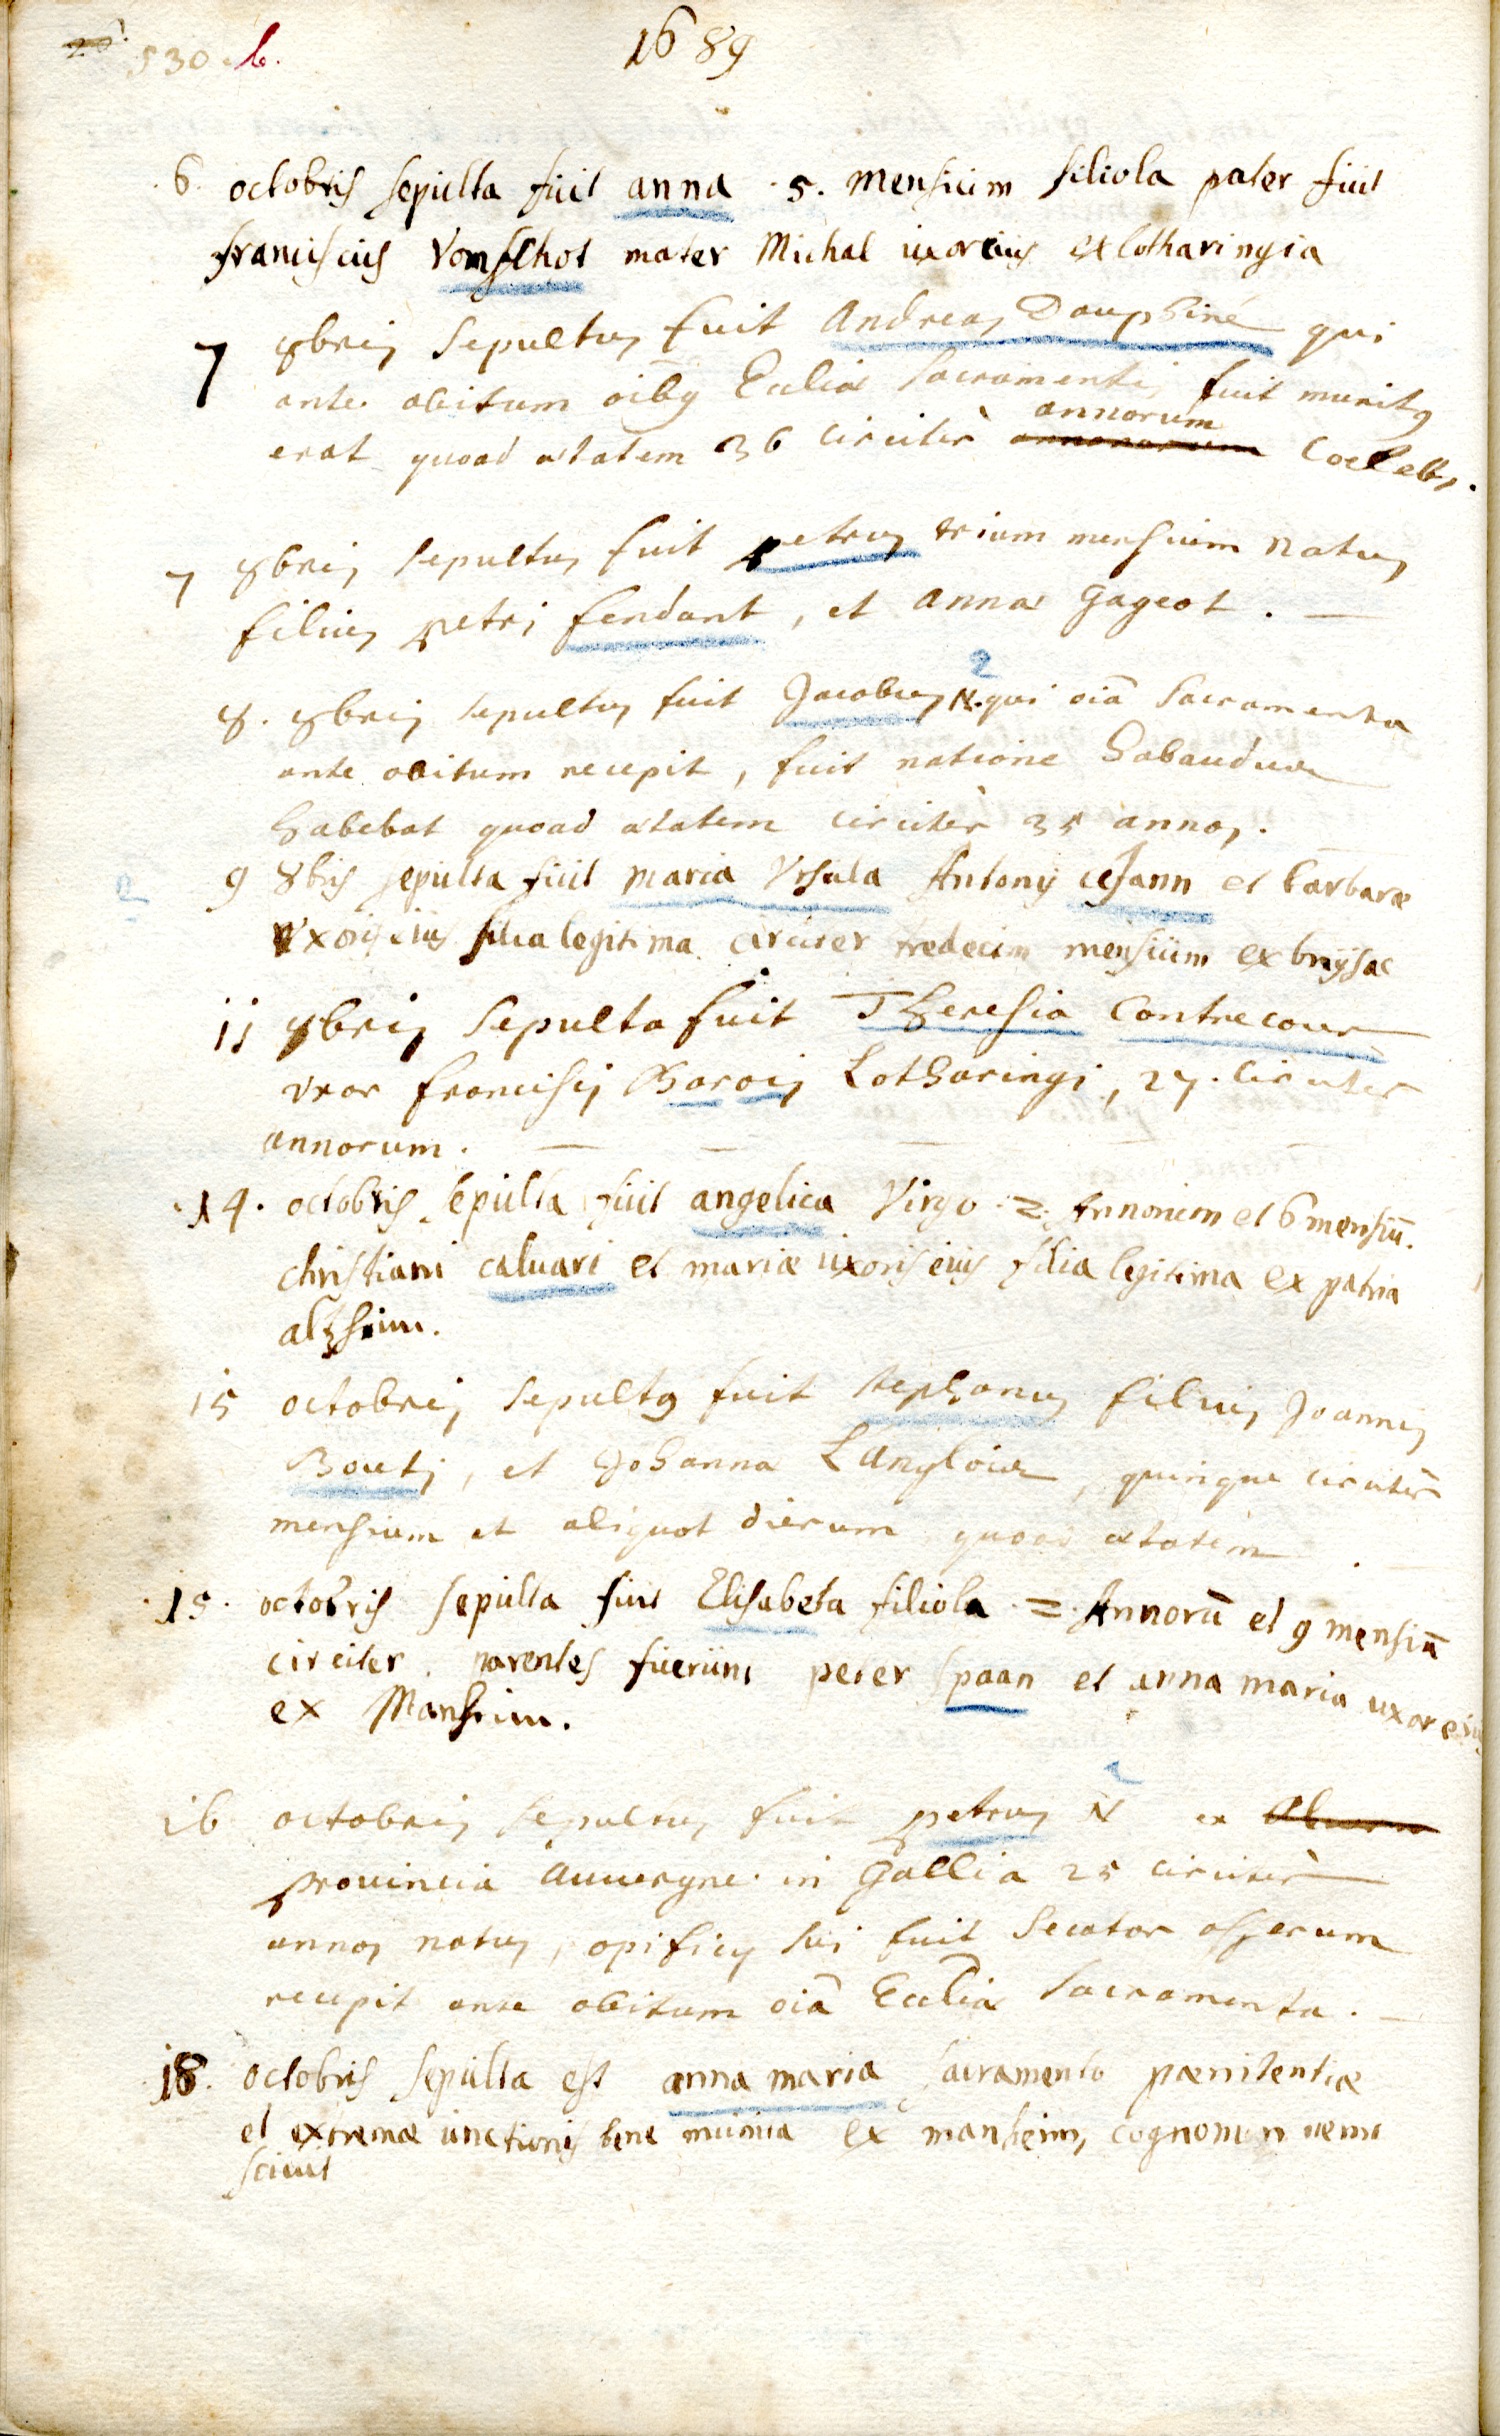 530 b.
1689
6. octobris sepulta fuit anna .5. mensium filiola pater fuit
franciscus Vomschot mater Michal uxor eius ex lotharingia
7 8bris sepultus fuit Andreas Dauphiné qui
ante obitum oibq Ecclia Sacramentis fuit munitq
annorum
erat quoad ætatem 36 circiter Coelebs.
7 8bris sepultus fuit petrus trium mensium natus
filius petri fendant, et Annæ Gageot.
8. 8bris sepultus fuit Jacobus N. qui oiā Sacramenta
ante obitum recepit, fuit natione Sabaudus
habebat quoad ætatem circiter 35 annos.
9 8bris sepulta fuit maria Vrsula Antonij lesann et barbaræ
Vxoris eius filia legitima circiter tredecim mensium ex brijsac
11 8bris sepulta fuit Theresia Contrecour
vxor francisci Barois Lotharingi, 27. circiter
annorum.
14. octobris sepulta fuit angelica Virgo 2. Annorum et 6 mensiū.
christiani caluari et mariæ uxoris eius filia legitima ex patria
altzheim.
15 octobris sepultq fuit stephanus filius Joannis
Boueti, et Johanna Langlois, quinque circiter
mensium et aliquot dierum quoad ætatem.
15. octobris sepulta fuit Elisabeta filiola 2. Annorū et 9 mensiū
circiter. parentes fuerunt peter spaan et anna maria uxor eius
ex Manheim.
16 octobris sepultus fuit petrus N ex
prouincia Auuergne in Gallia 25 circiter
annos natus, opificij sui fuit Secator asserum
recepit ante obitum oiā Ecclia Sacramenta.
18. octobris sepulta est anna maria sacramento pænitentiæ
et extremæ unctionis bene munita ex manheim, cognomen nemo
sciuit